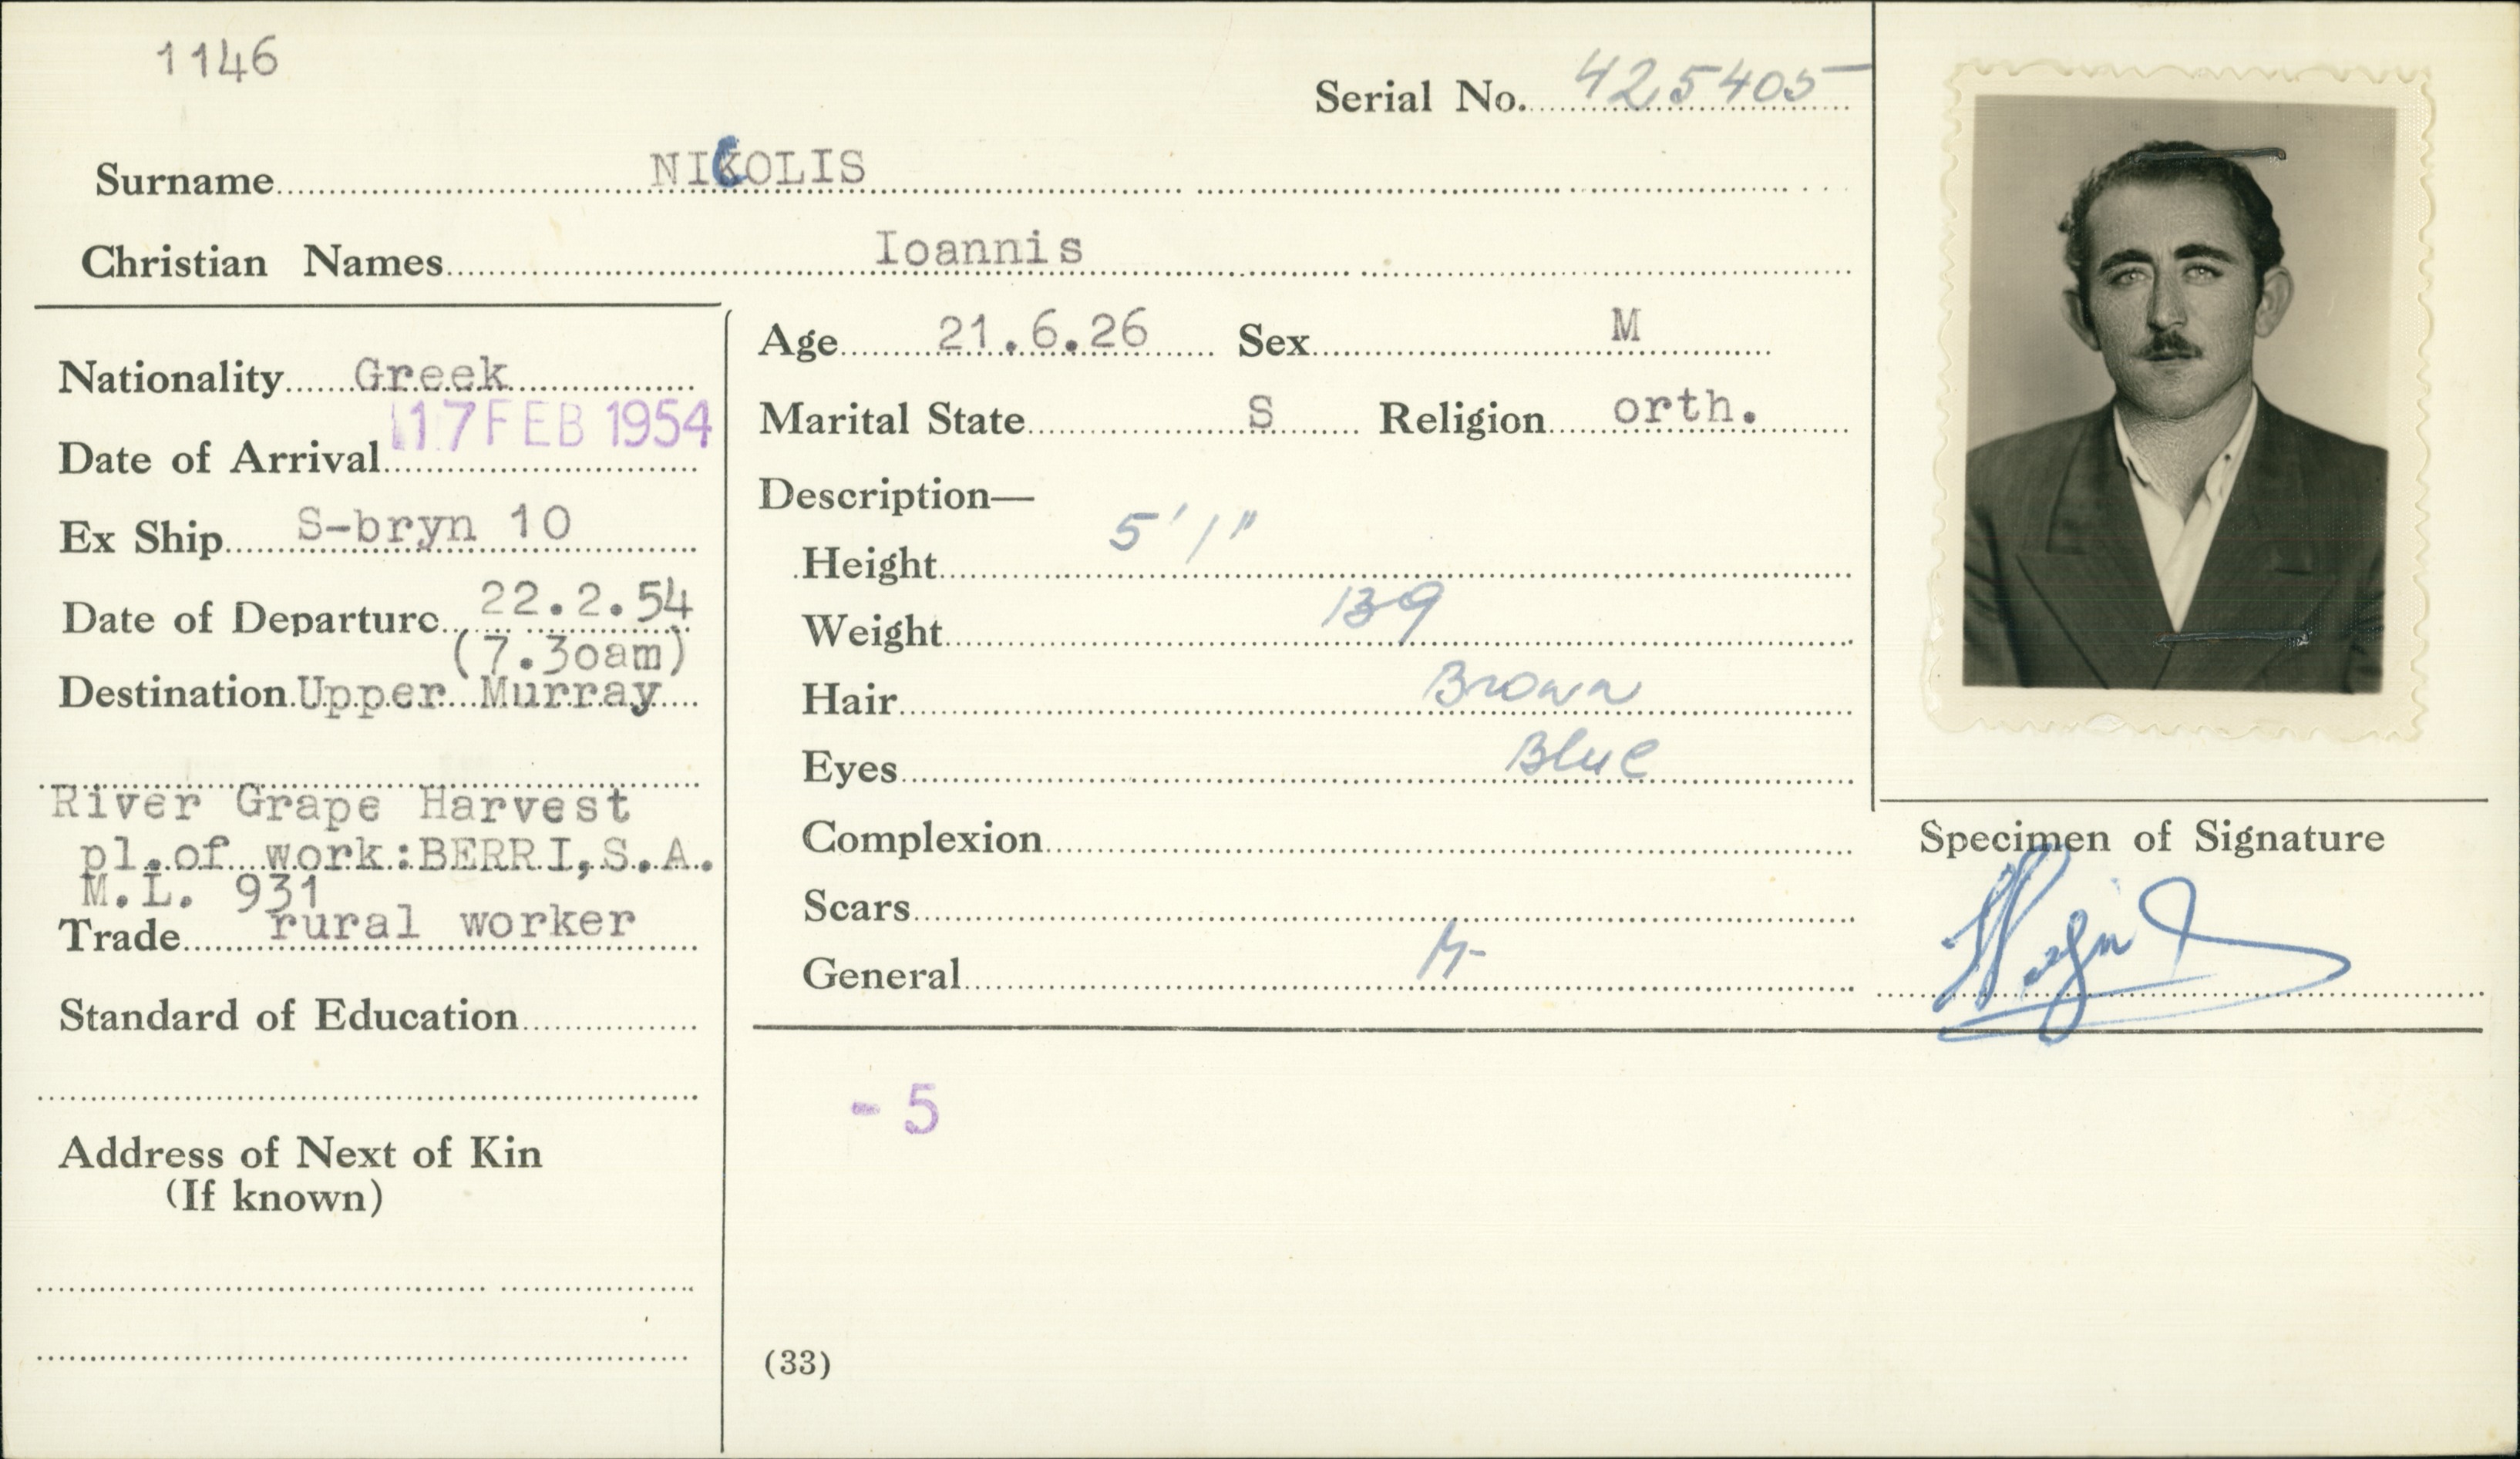 1146
Serial No. 425405
Surname NICOLIS
Christian Names Ioannis
Nationality Greek
Date of Arrival 17 FEB 1954
Ex Ship S-bryn 10
Date of Departure 22.2.54
(7.30am)
Destination Upper Murray
River Grape Harvest
pl.of work:BERRI,S.A.
M.L. 931
Trade rural worker
Standard of Education
Address of Next of Kin
(If known)
Age 21.6.26 Sex M
Marital State S Religion orth.
Description—
Height 5' 1"
Weight 139
Hair Brown
Eyes Blue
Complexion
Scars
General
Specimen of Signature
- 5
(33)